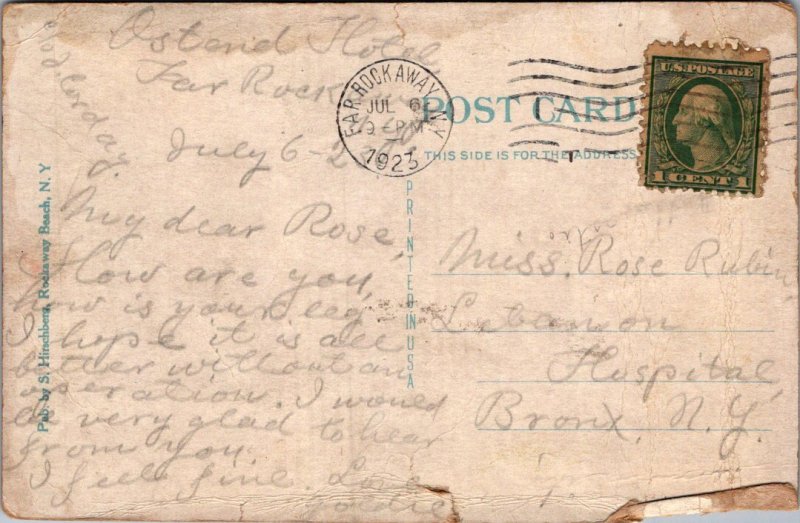 Ostend Hotel
Far Rock
July 6-2
My dear Rose,
How are you,
how is your leg
I hope it is all
better without an
operation. I would
be very glad to hear
from you.
I feel fine. Love
Goldie
Pub. by S. Hirschberg, Rockaway Beach, N. Y
PRINTED IN USA
FAR ROCKAWAY, N.Y.
JUL 6
9-PM
1923
POST CARD
THIS SIDE IS FOR THE ADDRESS
U.S. POSTAGE
1 CENT 1
Miss. Rose Rubin,
Lebanon
Hospital,
Bronx, N.Y.